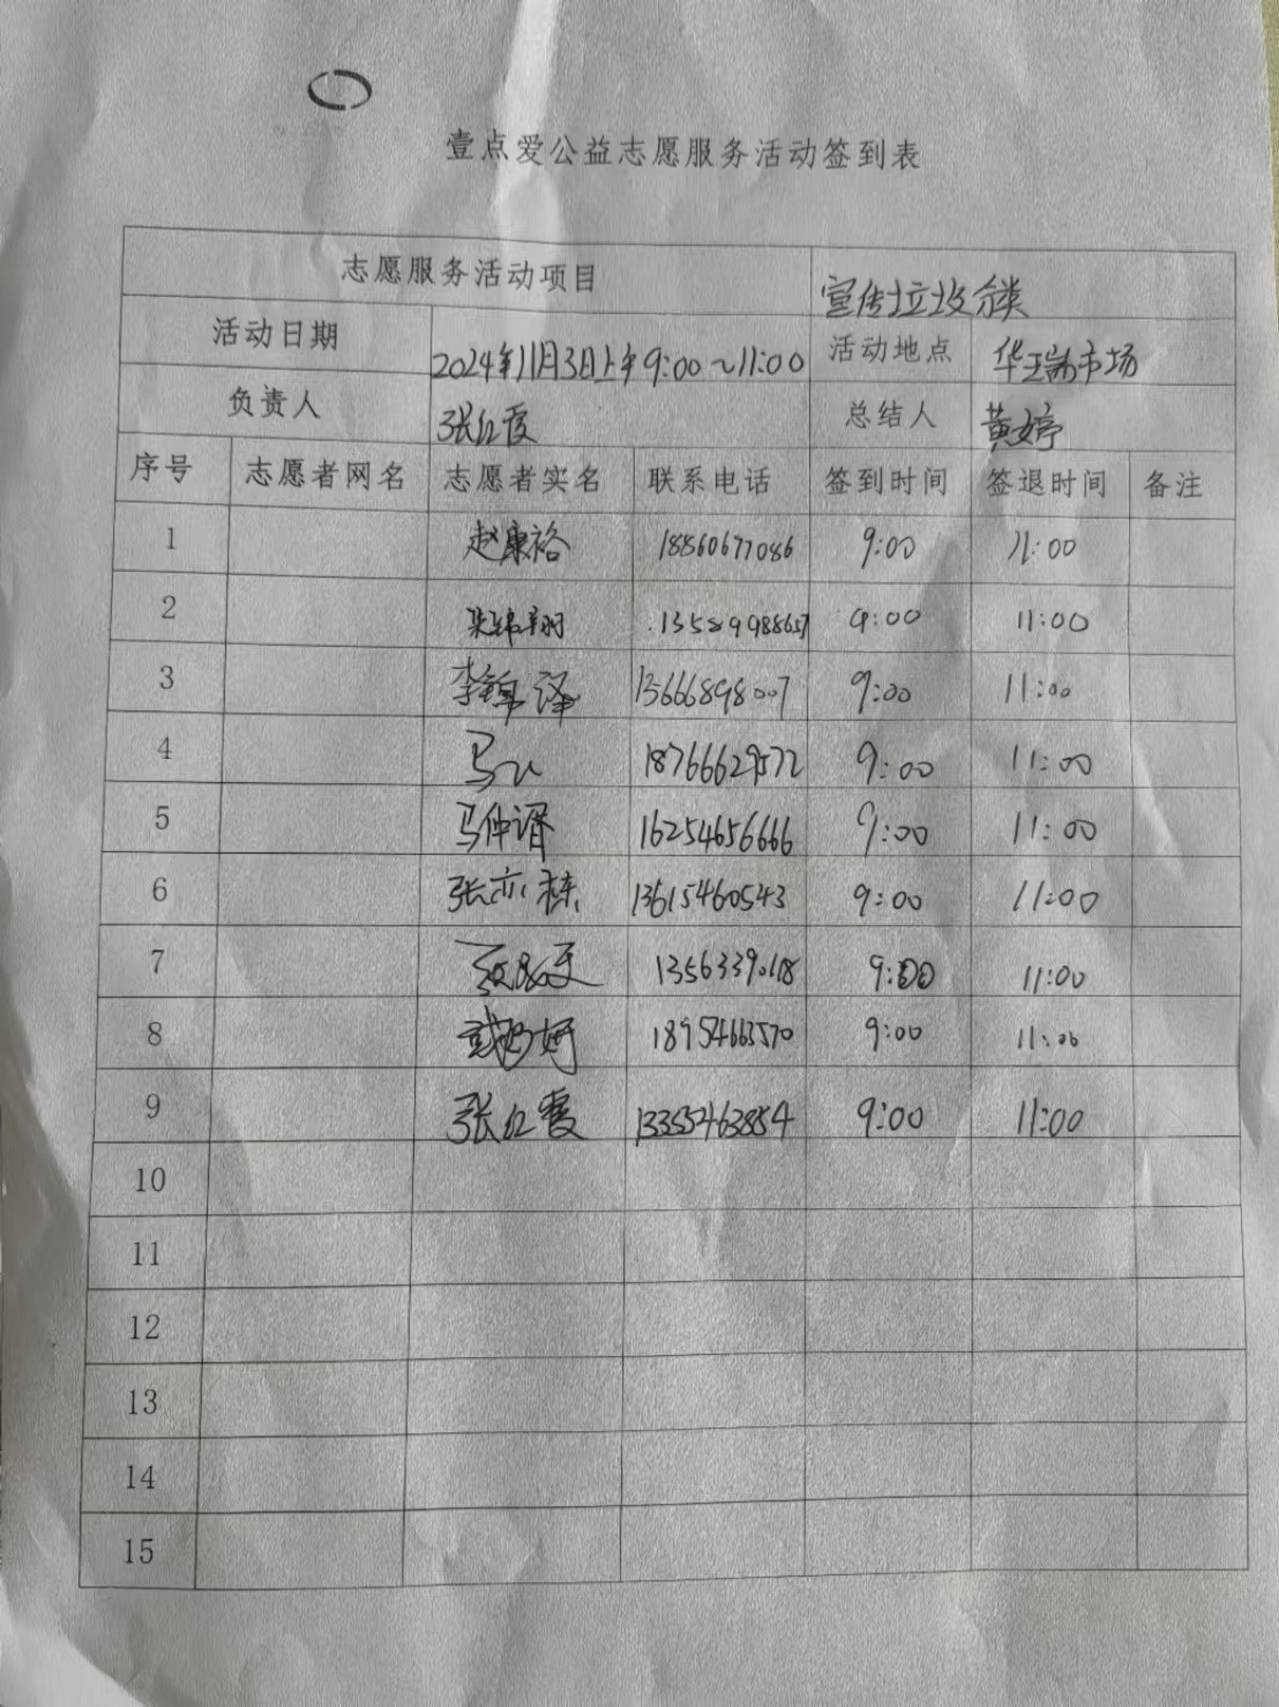 壹点爱公益志愿服务活动签到表
志愿服务活动项目 宣传垃圾分类
活动日期 2024年11月3日上午9:00~11:00 活动地点 华瑞市场
负责人 张红霞 总结人 黄婷
序号 志愿者网名 志愿者实名 联系电话 签到时间 签退时间 备注
1 赵康裕 18860677086 9:00 11:00
2 13589988657 9:00 11:00
3 李锦泽 13666898007 9:00 11:00
4 18766629572 9:00 11:00
5 马仲谞 16254656666 9:00 11:00
6 张亦栋 13615460543 9:00 11:00
7 9:00 11:00
8 18954663570 9:00 11:00
9 张红霞 13355463854 9:00 11:00
10
11
12
13
14
15